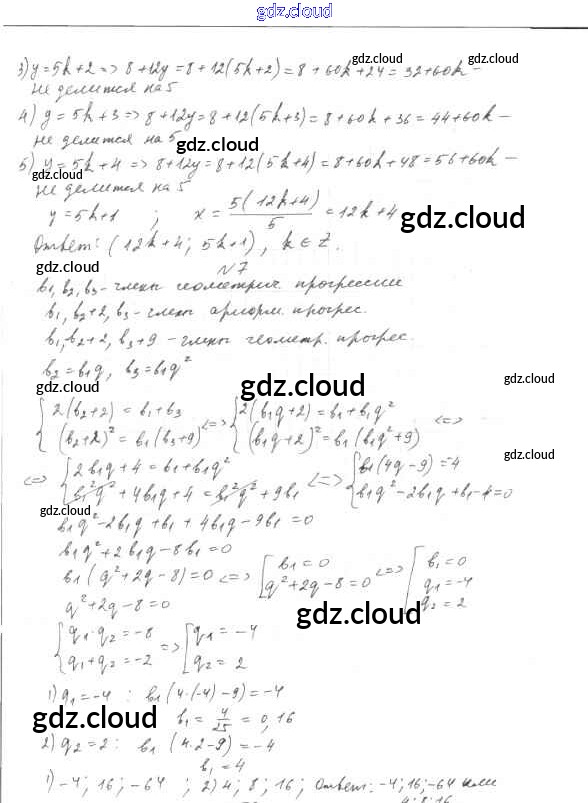 gdz.cloud
3) y=5k+2 => 8+12y=8+12(5k+2)=8+60k+24=32+60k –
не делится на 5
gdz.cloud
gdz.cloud
4) y=5k+3 => 8+12y=8+12(5k+3)=8+60k+36=44+60k –
не делится на 5
gdz.cloud
5) y=5k+4 => 8+12y=8+12(5k+4)=8+60k+48=56+60k –
не делится на 5
gdz.cloud
y=5k+1 ; x = 5(12k+4)/5 = 12k+4
gdz.cloud
Ответ: (12k+4; 5k+1), k ∈ Z.
N7
gdz.cloud
b1, b2, b3 – члены геометрич. прогрессии
b1, b2+2, b3 – члены арифм. прогрес.
b1, b2+2, b3+9 – члены геометр. прогрес.
gdz.cloud
b2=b1q, b3=b1q²
gdz.cloud
gdz.cloud
{ 2(b2+2) = b1+b3 <=> { 2(b1q+2) = b1+b1q² <=>
(b2+2)² = b1(b3+9) (b1q+2)² = b1(b1q²+9)
gdz.cloud
<=> { 2b1q+4 = b1+b1q² <=> { b1(4q-9) = -4
b1²q² + 4b1q+4 = b1²q² + 9b1 b1q²-2b1q+b1-4=0
gdz.cloud
b1q²-2b1q+b1+4b1q-9b1=0
b1q²+2b1q-8b1=0
b1(q²+2q-8)=0 <=> [ b1=0 <=> [ b1=0
q²+2q-8=0 q1=-4
q²+2q-8=0 q2=2
gdz.cloud
{ q1·q2=-8 => [ q1=-4
q1+q2=-2 q2=2
1) q1=-4 : b1(4·(-4)-9)=-4
gdz.cloud
b1 = 4/25 = 0,16
gdz.cloud
2) q2=2: b1(4·2-9)=-4
b1=4
1) -4; 16; -64 ; 2) 4; 8; 16; Ответ: -4; 16; -64 или
4; 8; 16